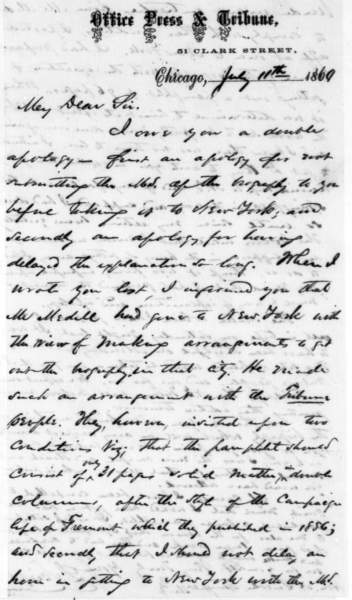 Office Press & Tribune,
51 CLARK STREET,
Chicago, July 11th 1860
My Dear Sir.
I owe you a double
apology — first an apology for not
submitting the Md. of the biography to you
before taking it to New York; and
secondly an apology for having
delayed the explanation so long. When I
wrote you last, I informed you that
Mr Medill had gone to New York with
the view of making arrangements to get
out the biography in that city. He made
such an arrangement with the Tribune
people. They, however, insisted upon two
conditions viz; that the pamphlet should
consist of only 31 pages solid matter, in double
columns, after the style of the Campaign
life of Fremont which they published in 1856;
and secondly that I should not delay an
hour in getting to New York with the Md.